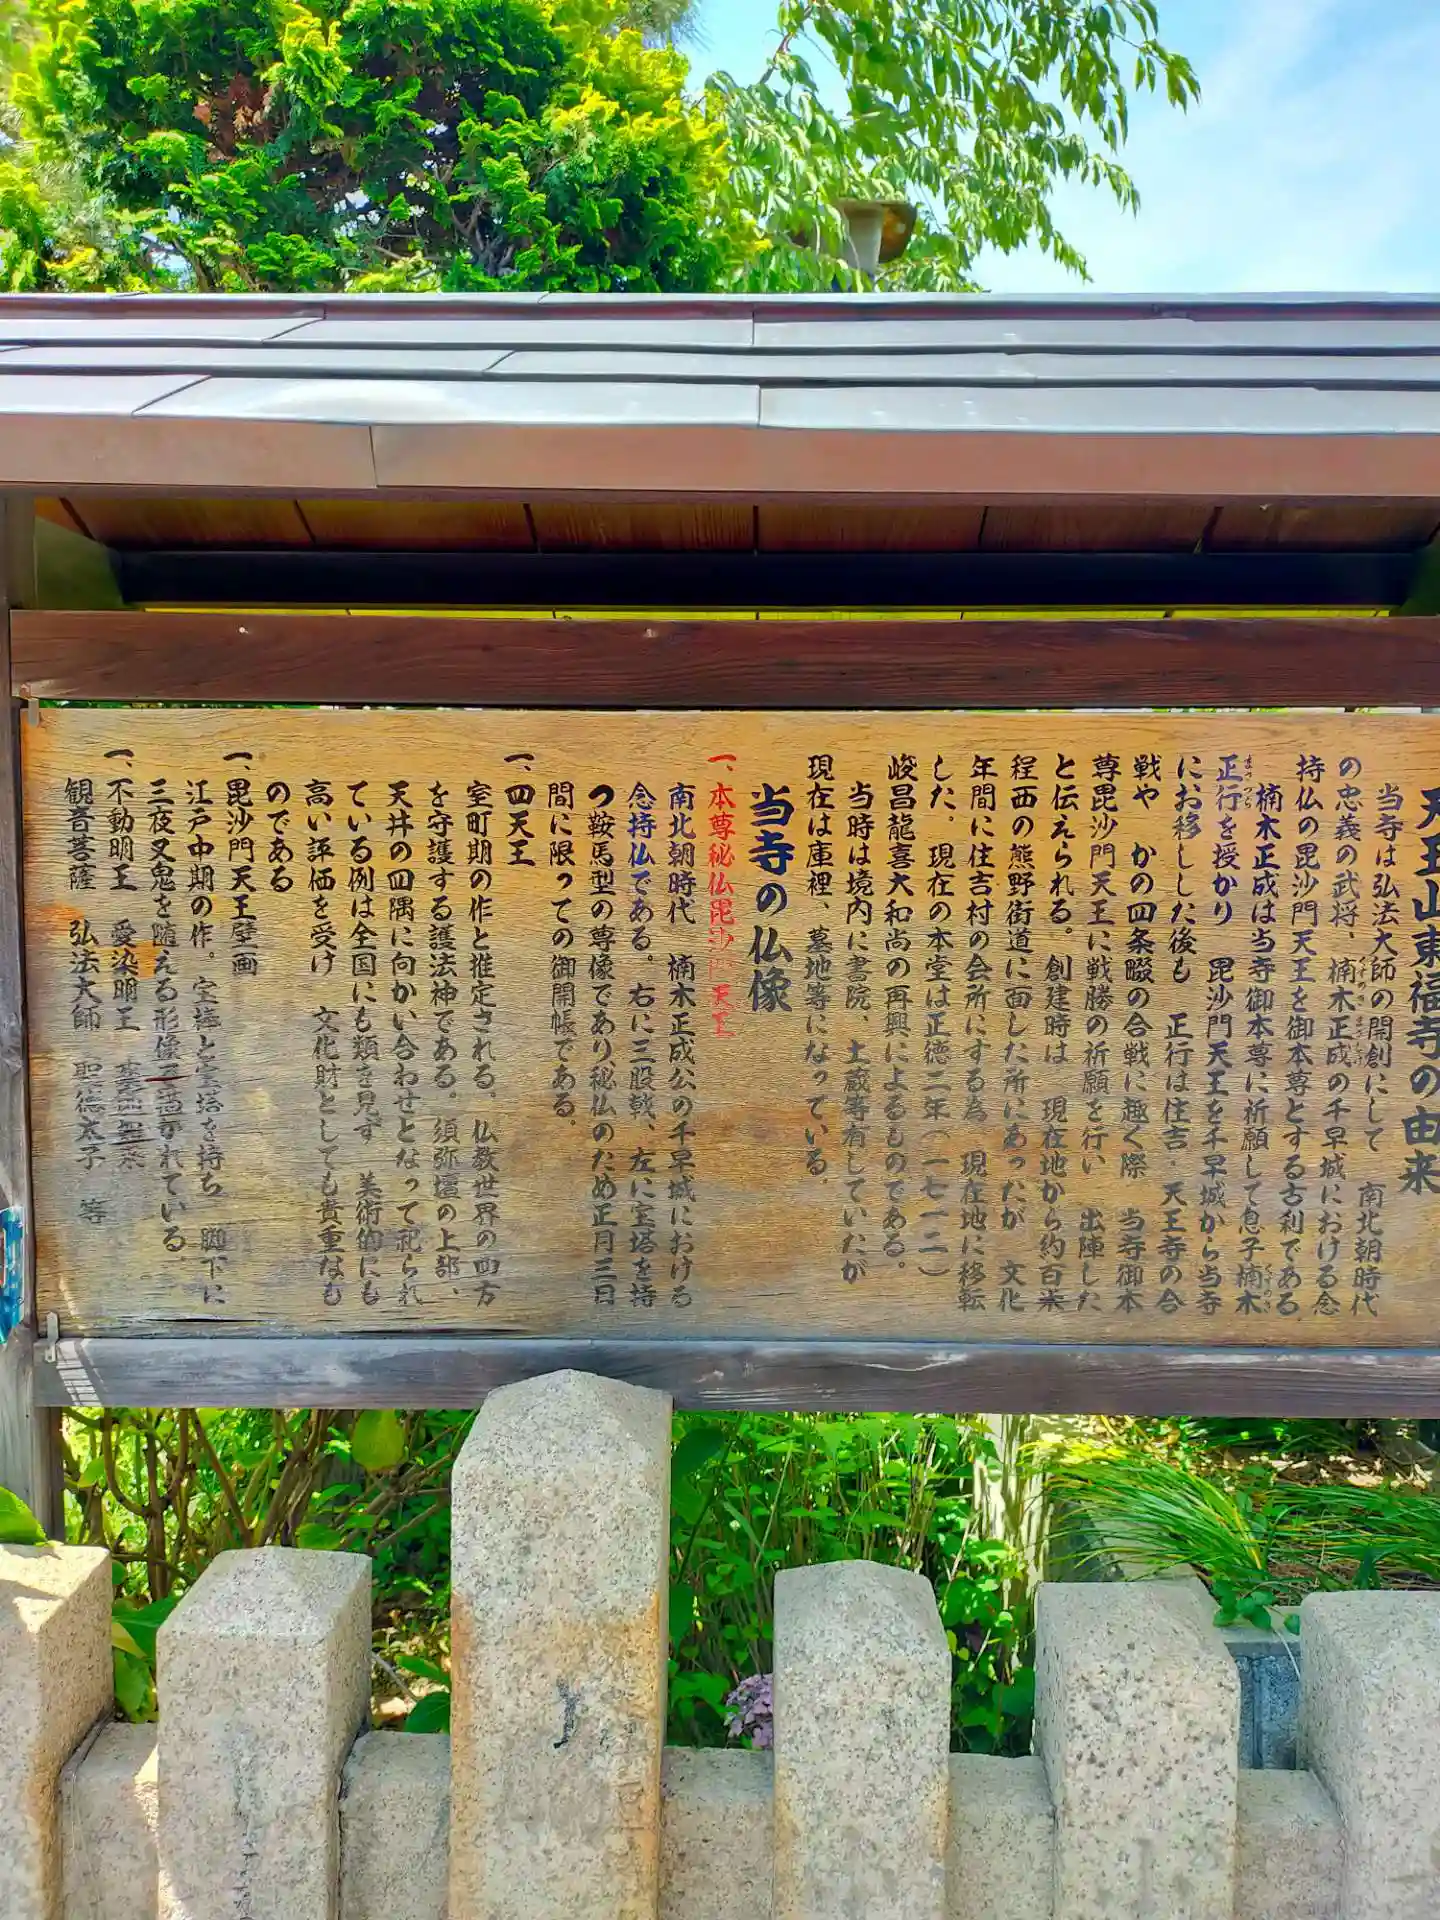 天王山東福寺の由来
当寺は弘法大師の開創にして 南北朝時代
の忠義の武将、楠木正成の千早城における念
持仏の毘沙門天王を御本尊とする古利である
楠木正成は当寺御本尊に祈願して息子楠木
正行を授かり 毘沙門天王を千早城から当寺
にお移しした後も 正行は住吉・天王寺の合
戦や かの四条畷の合戦に趣く際 当寺御本
尊毘沙門天王に戦勝の祈願を行い 出陣した
と伝えられる。創建時は 現在地から約百米
程西の熊野街道に面した所にあったが 文化
年間に住吉村の会所にする為 現在地に移転
した。現在の本堂は正徳二年(一七一二)
峻昌龍喜大和尚の再興によるものである。
当時は境内に書院、土蔵等有していたが
現在は庫裡、墓地等になっている。
当寺の仏像
一、本尊秘仏毘沙門天王
南北朝時代 楠木正成公の千早城における
念持仏である。右に三股戟、左に宝塔を持
つ鞍馬型の尊像であり、秘仏のため正月三日
間に限っての御開帳である。
一、四天王
室町期の作と推定される。仏教世界の四方
を守護する護法神である。須弥壇の上部、
天井の四隅に向かい合わせとなって祀られ
ている例は全国にも類を見ず 美術的にも
高い評価を受け 文化財としても貴重なも
のである
一、毘沙門天王壁画
江戸中期の作。宝棒と宝塔を持ち 脚下に
三夜叉鬼を随える形像で描かれている。
一、不動明王 愛染明王
観音菩薩 弘法大師 聖徳太子 等